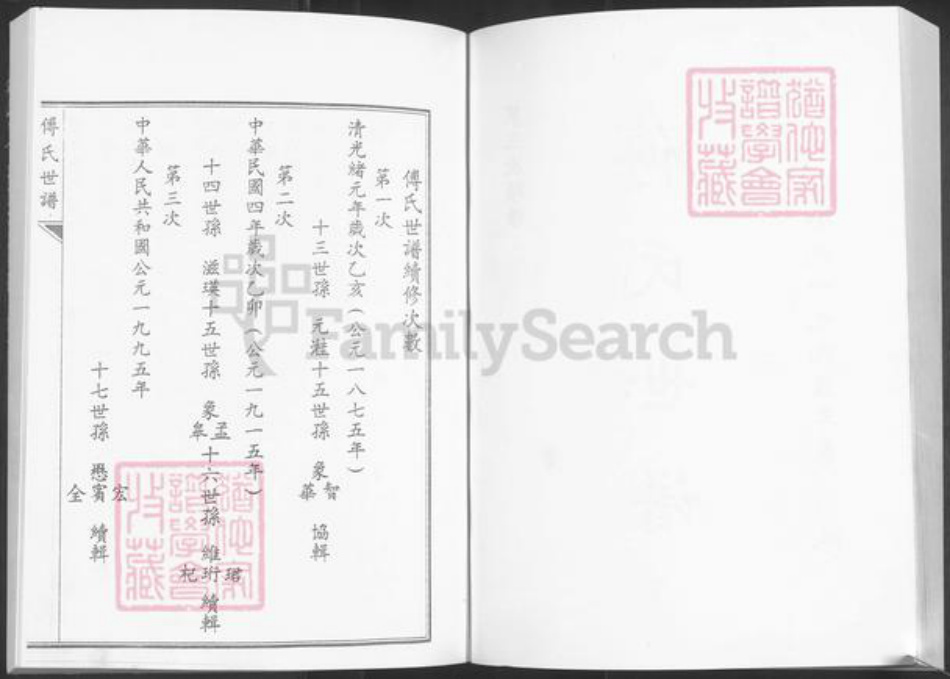 傅氏世譜續修次數
第一次
清光緒元年歲次乙亥(公元一八七五年)
十三世孫 元 十五世孫 象智華 協輯
第二次
中華民國四年歲次乙卯(公元一九一五年)
十四世孫 滋瑛十五世孫 象孟皋十六世孫 維珺珩杞 續輯
第三次
中華人民共和國公元一九九五年
十七世孫 懋宏賓全 續輯
傅氏世譜
FamilySearch
譜學會
收藏
譜學會
收藏